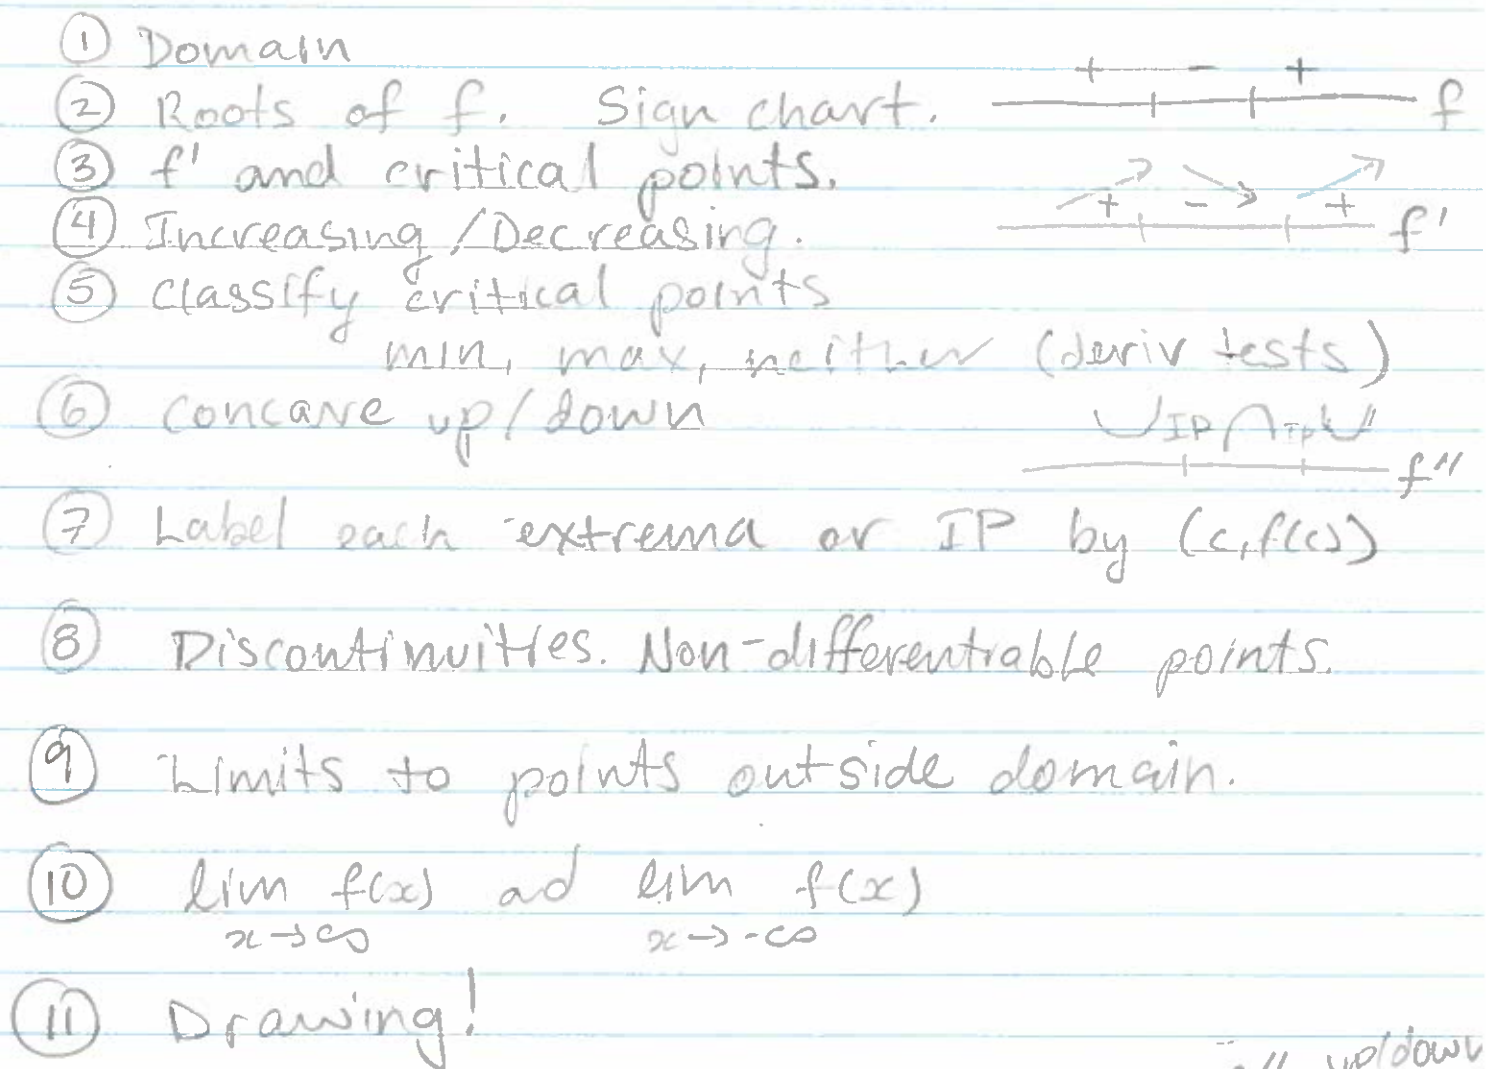 ① Domain
② Roots of f. Sign chart. + - + f
③ f' and critical points.
④ Increasing/Decreasing. + - + f'
⑤ classify critical points
min, max, neither (deriv tests)
⑥ concave up/down IP IP
f"
⑦ Label each extrema or IP by (c,f(c))
⑧ Discontinuities. Non-differentiable points.
⑨ Limits to points outside domain.
⑩ lim f(x) ad lim f(x)
x→∞ x→-∞
⑪ Drawing!
up/down